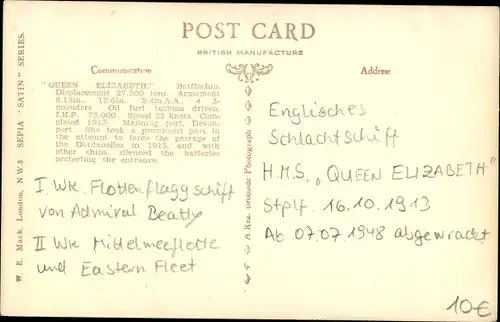 POST CARD
BRITISH MANUFACTURE
Communication
Address
"QUEEN ELIZABETH." Battleship.
Displacement 27,500 tons. Armament
8.15in., 12.6in., 2.4in.A.A., 4 3-
pounders Oil fuel turbine driven.
I.H.P. 75,000 Speed 25 knots Com-
pleted 1915 Manning port, Devon-
port. She took a prominent part in
the attempt to force the passage of
the Dardanelles in 1915, and with
other ships, silenced the batteries
protecting the entrance.
I. WK. Flottenflaggschiff
von Admiral Beatty
II WK Mittelmeerflotte
und Eastern Fleet
W. E. Mack, London, N.W.3 SEPIA "SATIN" SERIES.
A Real Bromide Photograph
Englisches
Schlachtschiff
H.M.S. „QUEEN ELIZABETH"
Stplf. 16.10.1913
Ab 07.07.1948 abgewrackt
10€